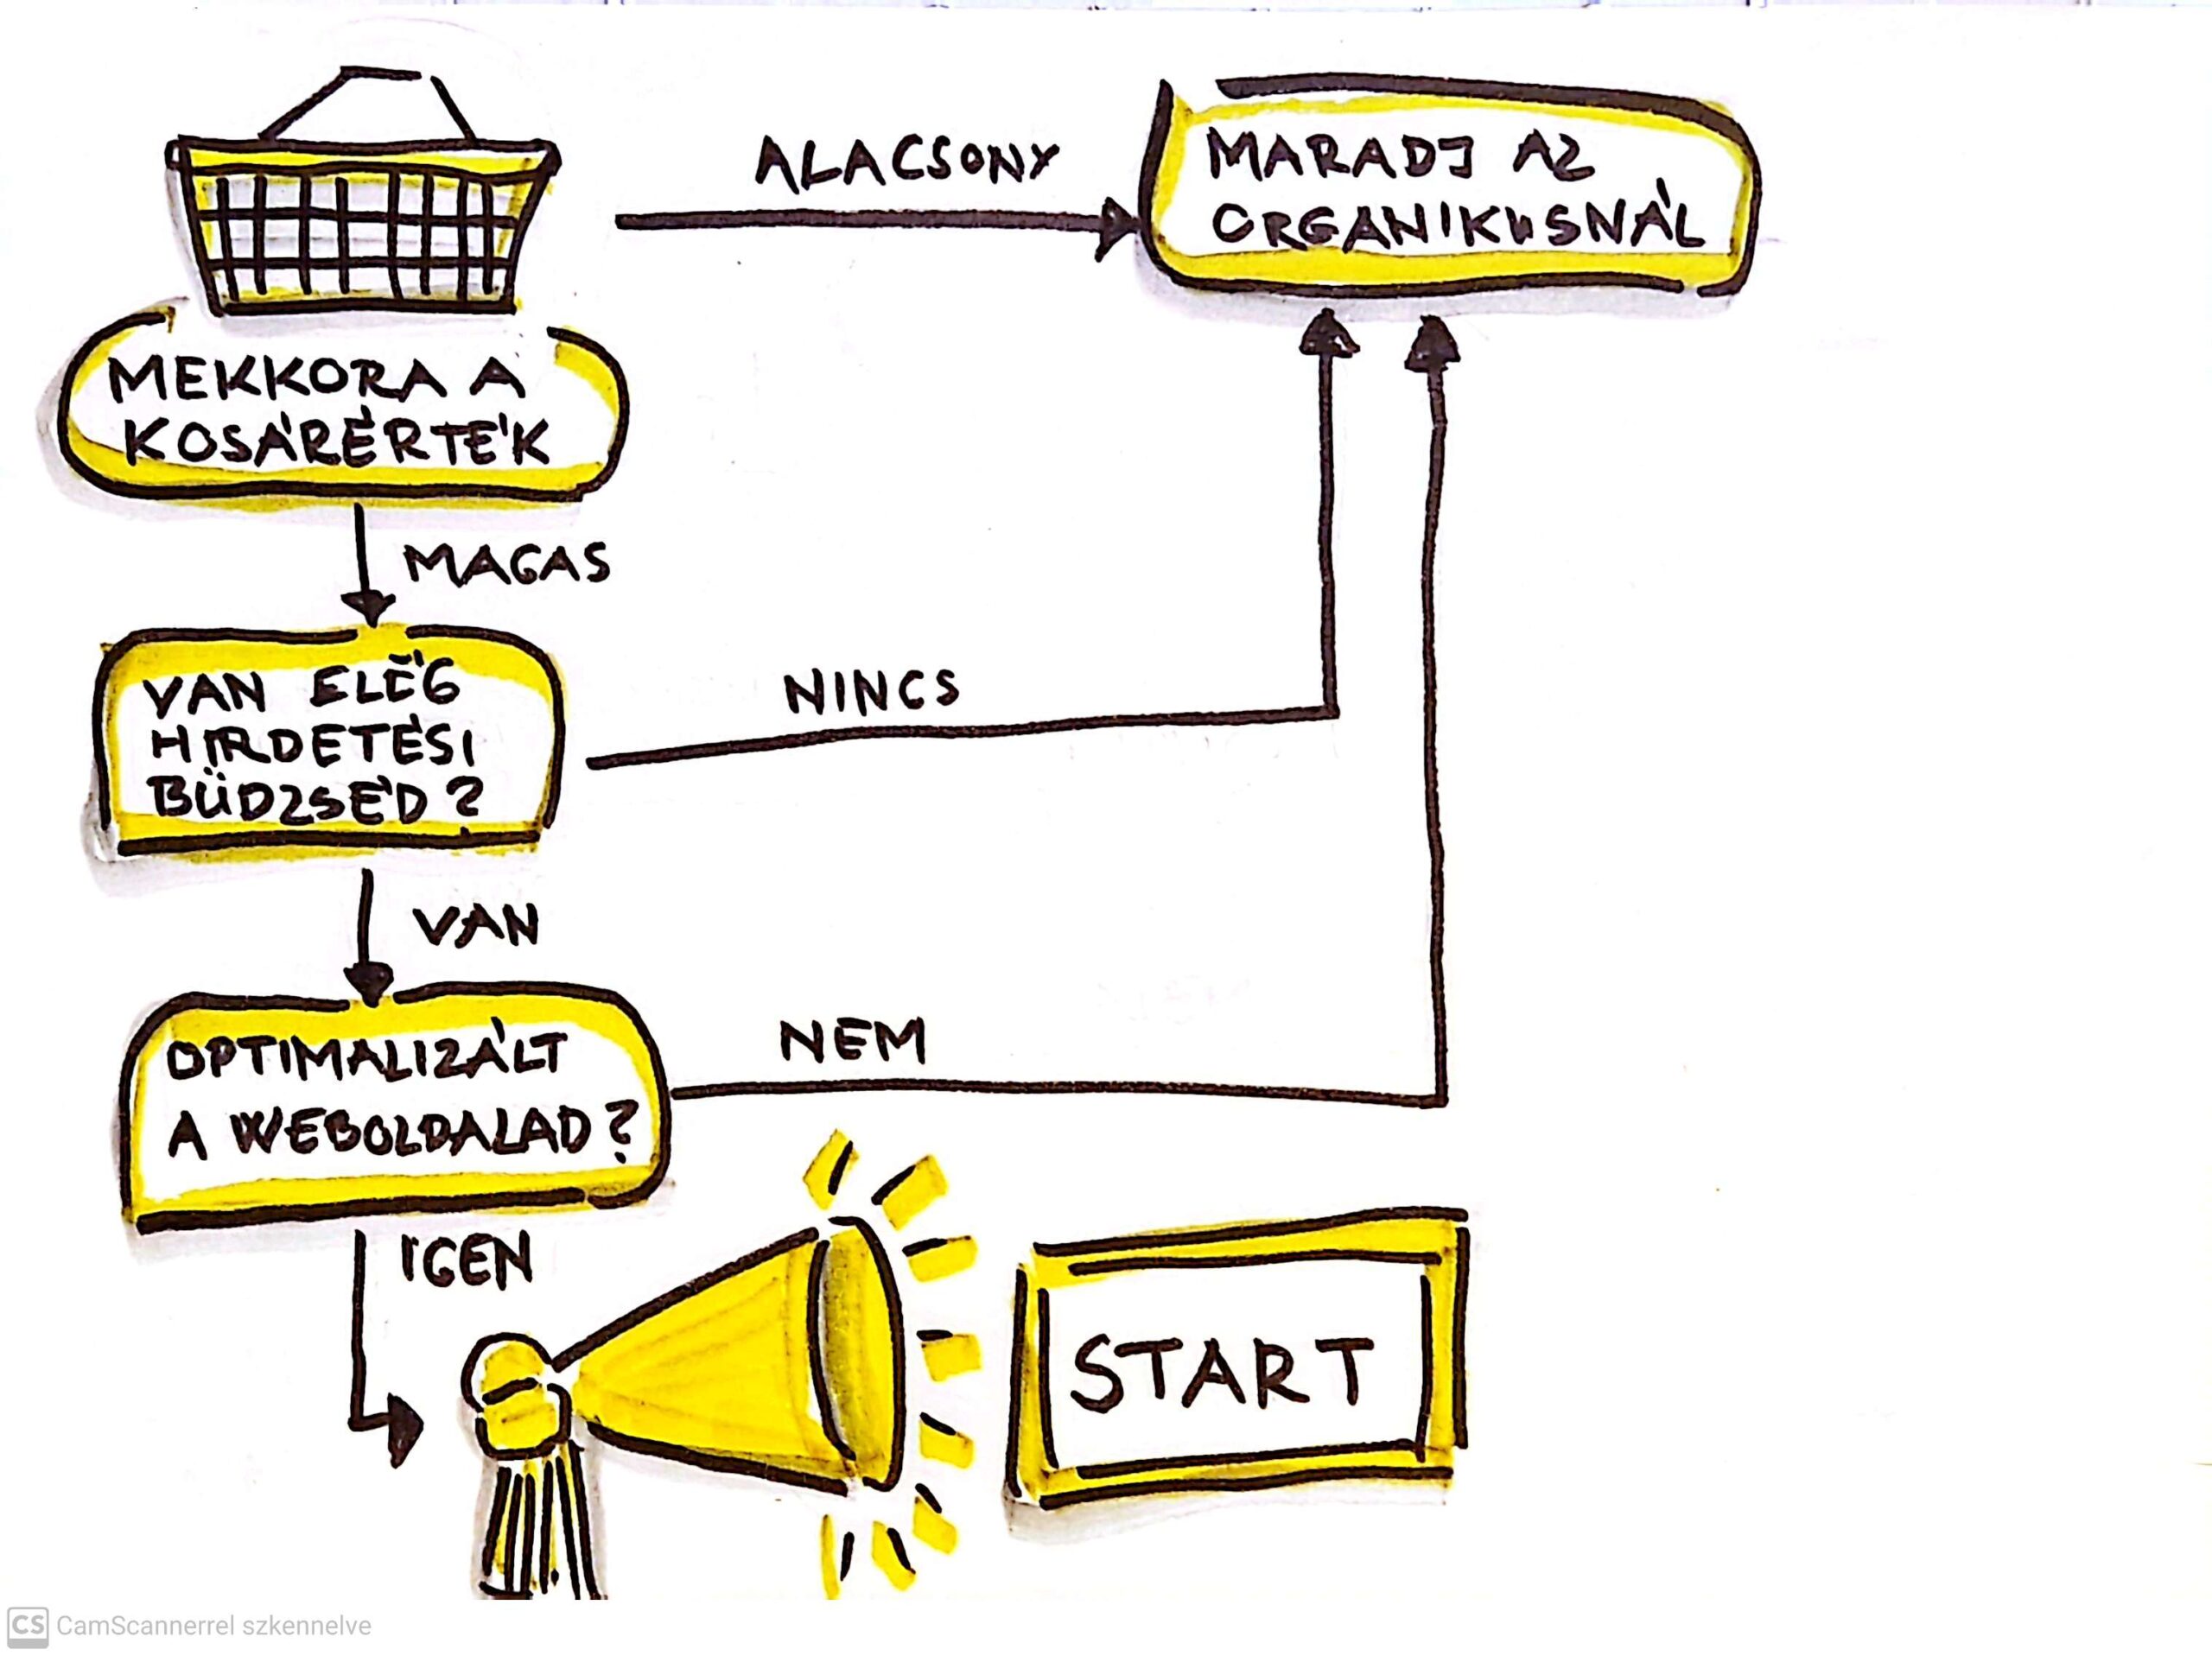 ALACSONY
MARADJ AZ
ORGANIKUSNÁL
MEKKORA A
KOSÁRÉRTÉK
MAGAS
VAN ELÉG
HIRDETÉSI
BÜDZSÉD?
NINCS
VAN
OPTIMALIZÁLT
A WEBOLDALAD?
NEM
IGEN
START
CS CamScannerrel szkennelve